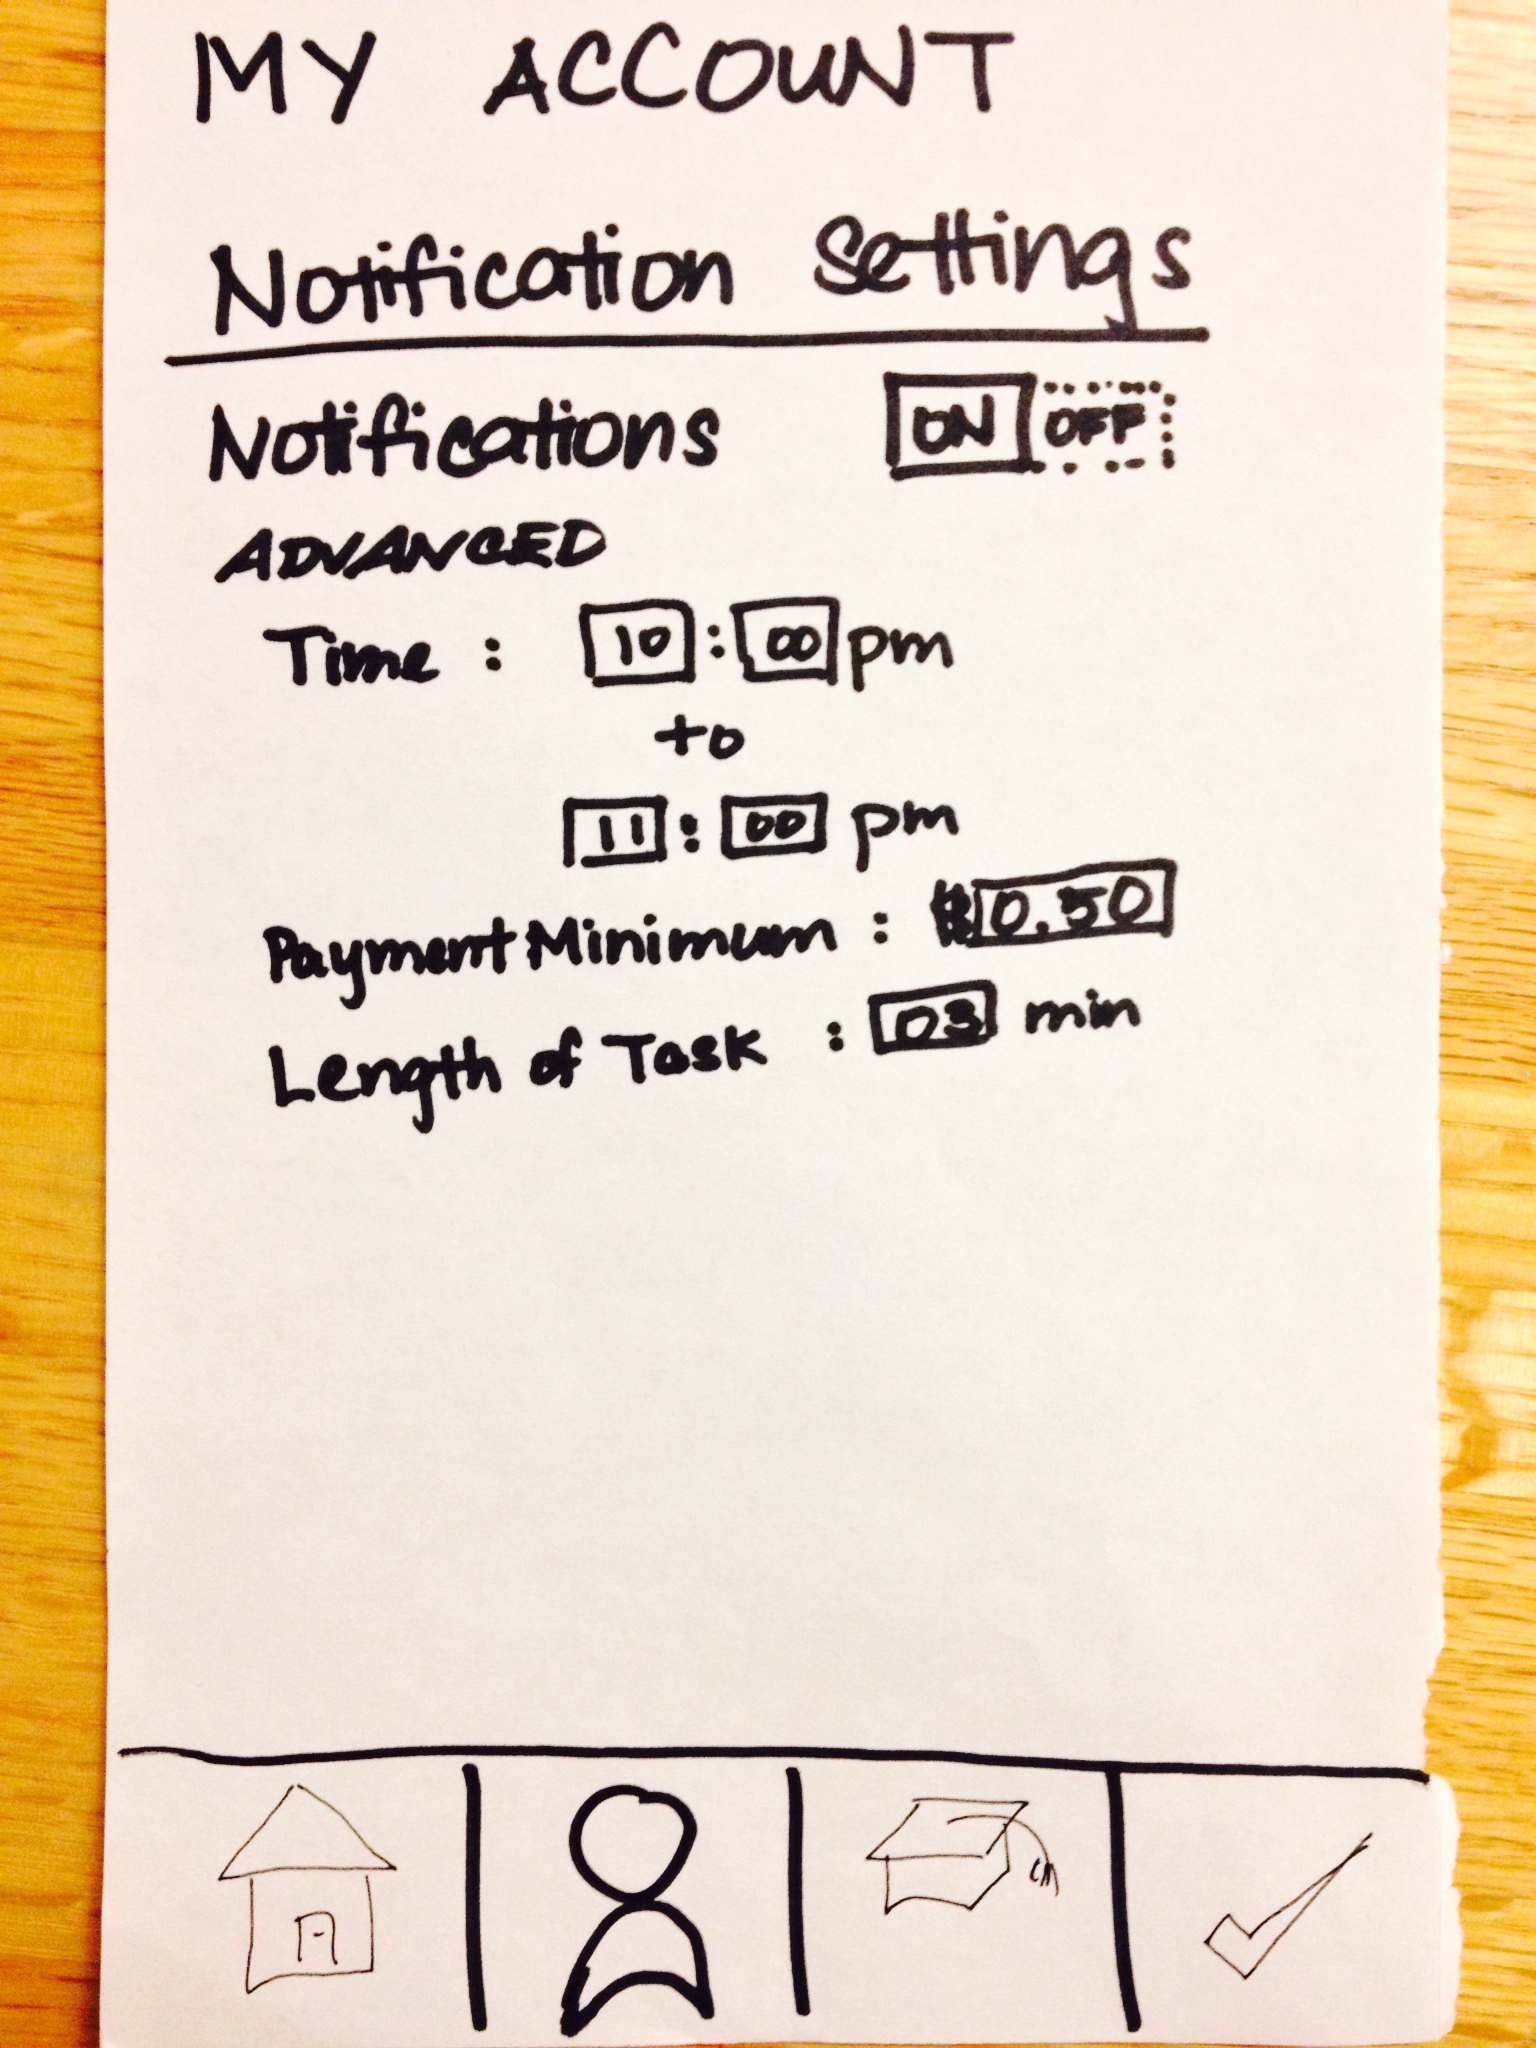 MY ACCOUNT
Notification Settings
Notifications ON OFF
ADVANCED
Time : 10 : 00 pm
to
11 : 00 pm
Payment Minimum : 0.50
Length of Task : 03 min